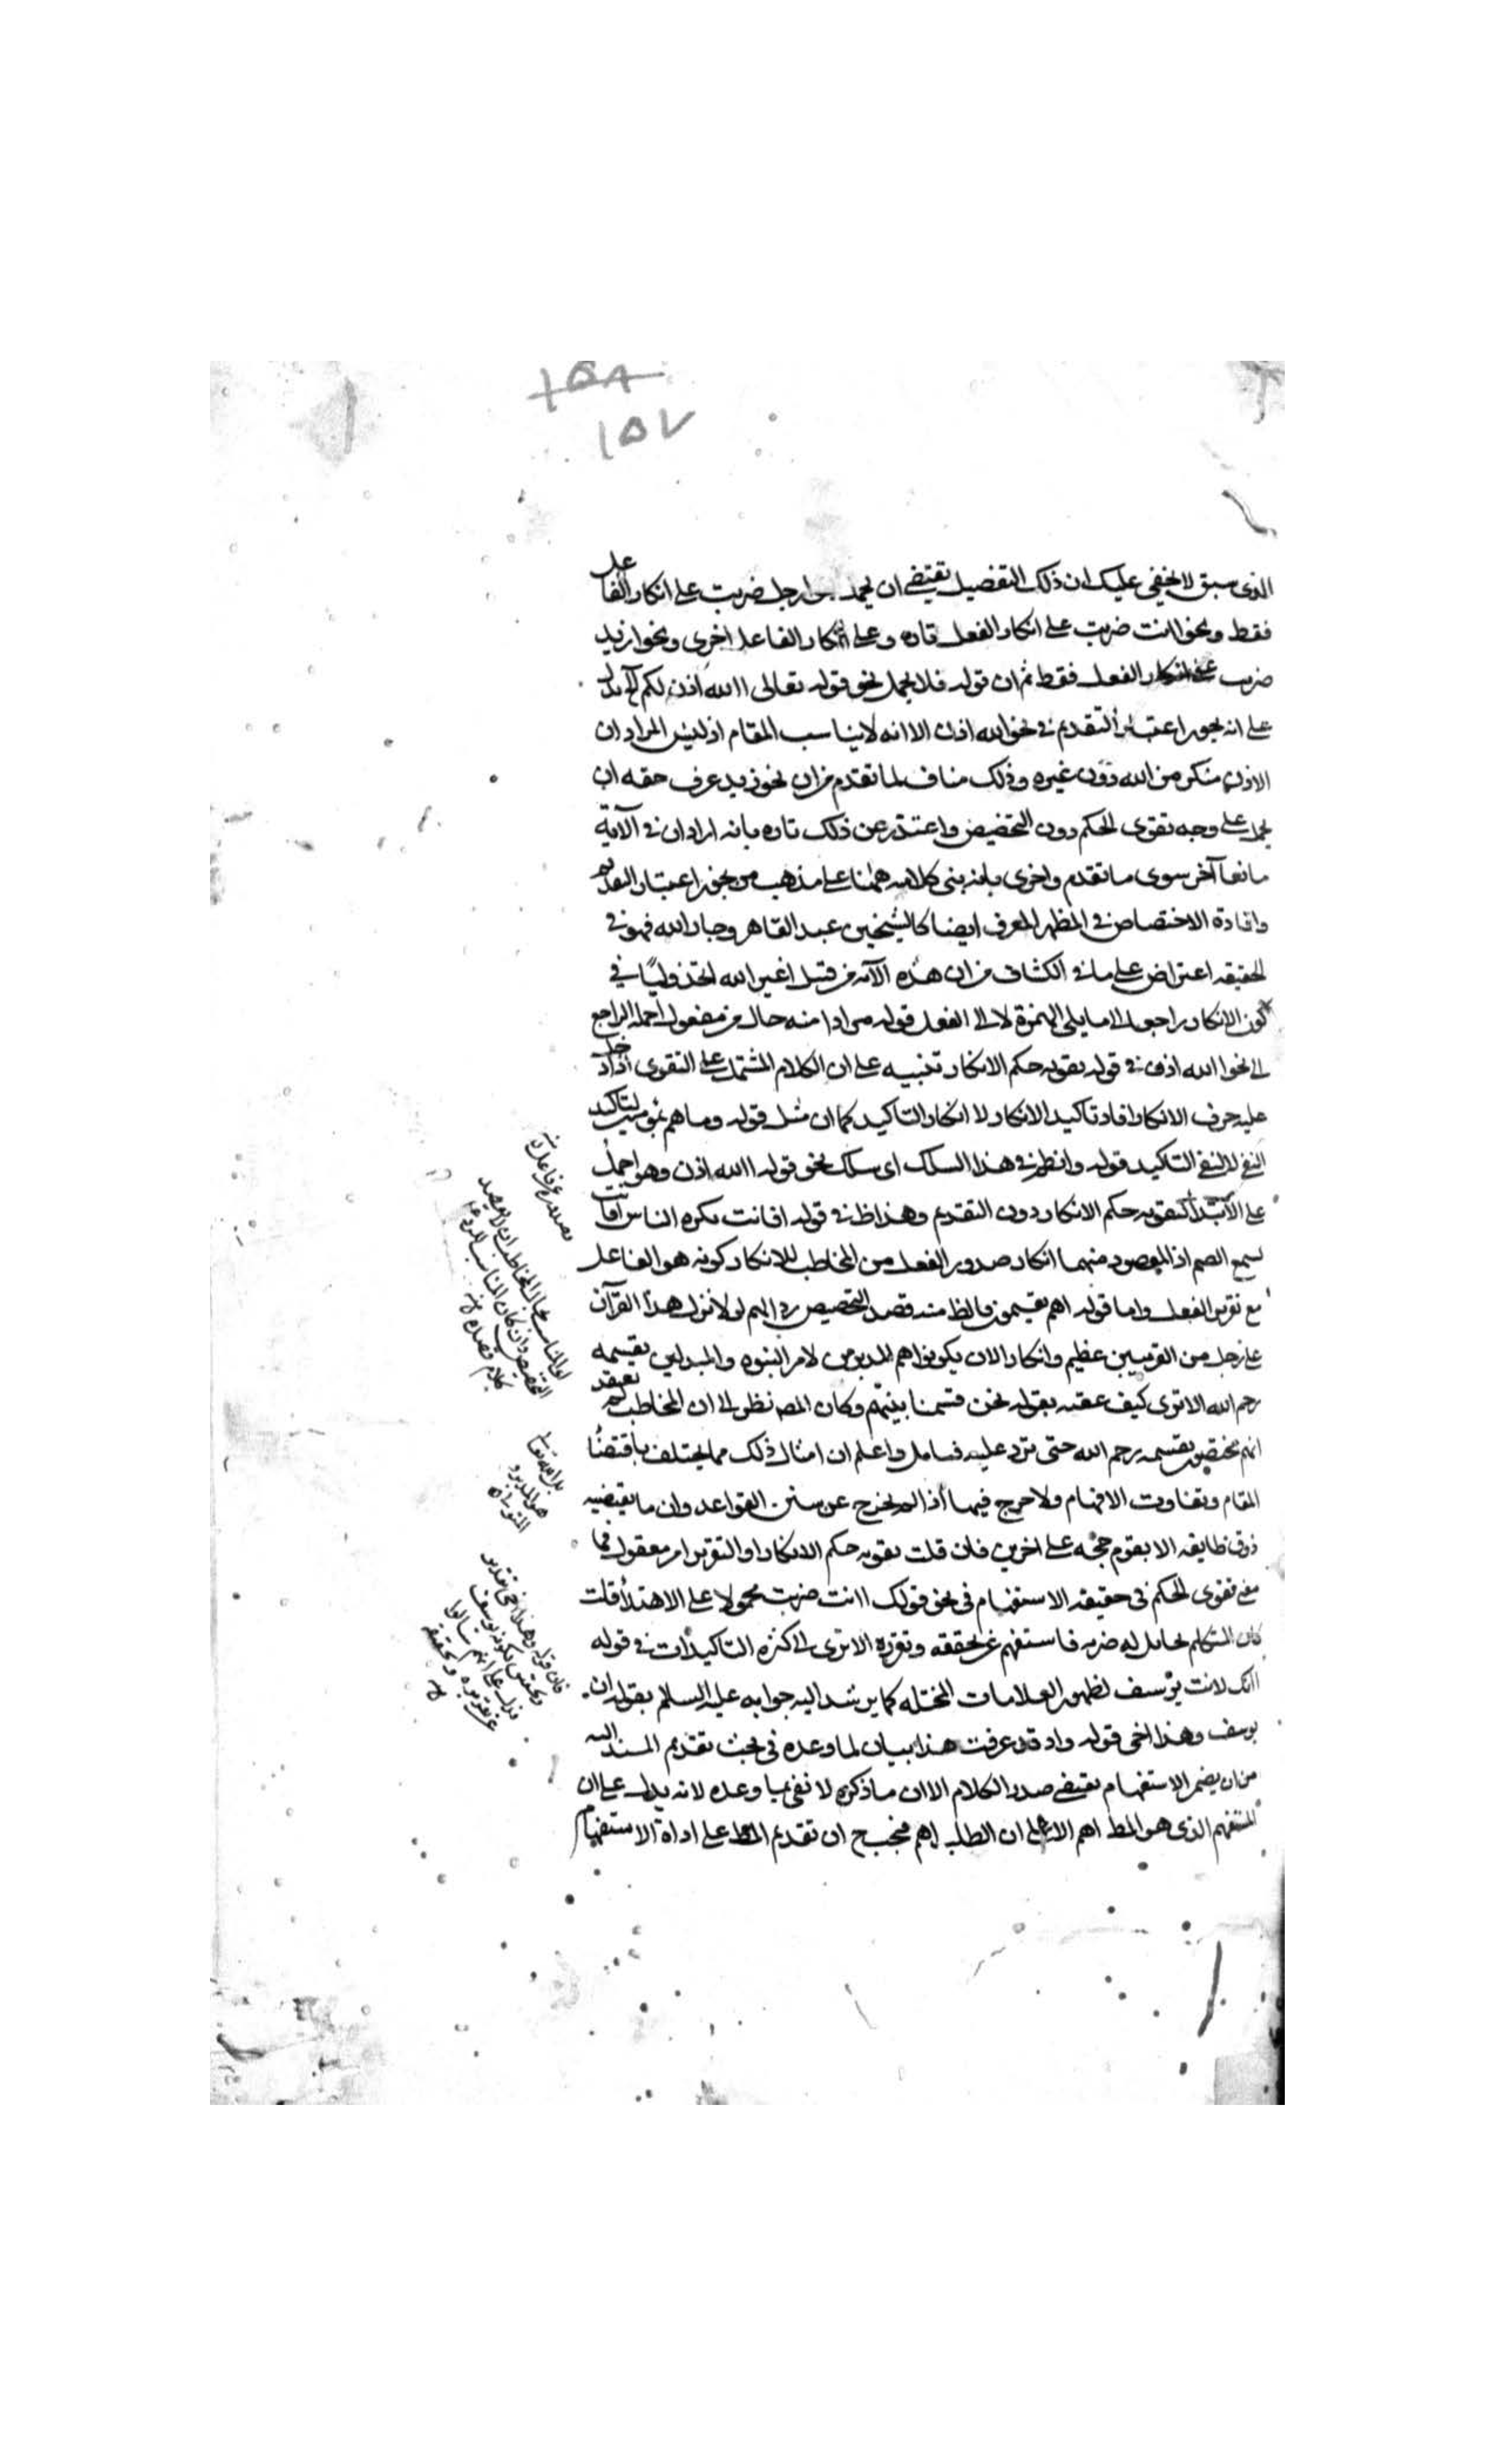 ١٥٨
١٥٧
الذى سبق لا يخفى عليك ان ذلك التفصيل يقتضى ان يحمل ارجل ضربت على انكار الفاعل
فقط ونحو اانت ضربت على انكار الفعل تارة وعلى انكار الفاعل اخرى ونحو ازيد
ضربت على انكار الفعل فقط ثم ان قوله فلا يحمل نحو قوله تعالى االله اذن لكم يدل
على انه يجوز اعتبار التقديم فى نحو االله اذن الا انه لا يناسب المقام اذ ليس المراد ان
الاذن منكر من الله دون غيره وذلك مناف لما تقدم من ان نحو زيد عرف حقه ان
يحمل على وجه تقوى الحكم دون التخصيص واعتذر عن ذلك تارة بانه اراد ان فى الآية
مانعا آخر سوى ما تقدم واخرى بانه بنى كلامه ههنا على مذهب من يجوز اعتبار التقديم
وافادة الاختصاص فى المظهر المعرف ايضا كالشيخين عبد القاهر وجار الله فهو فى
الحقيقه اعتراض على ما فى الكشاف من ان هذه الآية من قبيل اغير الله اتخذ وليا فى
كون الانكار راجعا الى ما يلى الهمزة لا الى الفعل قوله مرادا منه حال من مفعول احمله الراجع
الى نحو االله اذن فى قوله تقوية حكم الانكار تنبيه على ان الكلام المشتمل على التقوى اذا دخل
عليه حرف الانكار افاد تاكيد الانكار لا انكار التاكيد كما ان مثل قوله وما هم بمؤمنين لتاكيد
النفى لا لنفى التاكيد قوله وانظم فى هذا السلك اى سلك نحو قوله االله اذن وهو احمل
على الابتداء لتقوية حكم الانكار دون التقديم وهذا ظ فى قوله افانت تكره الناس افانت
تسمع الصم اذ المقصود منهما انكار صدور الفعل من المخاطب لا انكار كونه هو الفاعل
مع تقرير الفعل واما قوله اهم يقسمون فالظ منه قصد التخصيص ردا لهم لولا نزل هذا القرآن
على رجل من القريتين عظيم وانكارا لان يكونوا هم المدبرين لامر النبوه والمتولين لقسمه
رحمة الله الا ترى كيف عقبه بقوله نحن قسمنا بينهم وكان المص نظر الى ان المخاطب لم يعتقد
انهم مختصون بقسمه رحمة الله حتى ترد عليه فتامل واعلم ان امثال ذلك مما يختلف باقتضاء
المقام وتفاوت الافهام ولا حرج فيها اذا لم يخرج عن سنن القواعد وان ما يقتضيه
ذوق طايفه لا يقوم حجة على اخرين فان قلت تقوية حكم الانكار او التقرير امر معقول فما
معنى تقوى الحكم فى حقيقه الاستفهام فى نحو قولك اانت ضربت محمولا على الابتداء قلت
كان المتكلم فاستفهم عن تحققه وتقرره الا ترى الى كثرة التاكيدات فى قوله
اانك لانت يوسف لظهور العلامات كما يرشد اليه جوابه عليه السلم بقوله انا
يوسف وهذا اخى قوله واذ قد عرفت هذا بيان لما وعده فى بحث تقديم المسند اليه
من ان الاستفهام يقتضى صدر الكلام الا ان ما ذكره لا يفى بما وعده لانه يدل على ان
المستفهم الذى هو المط اهم لا على ان الطلب اهم فيجب ان تقديم المط على اداة الاستفهام